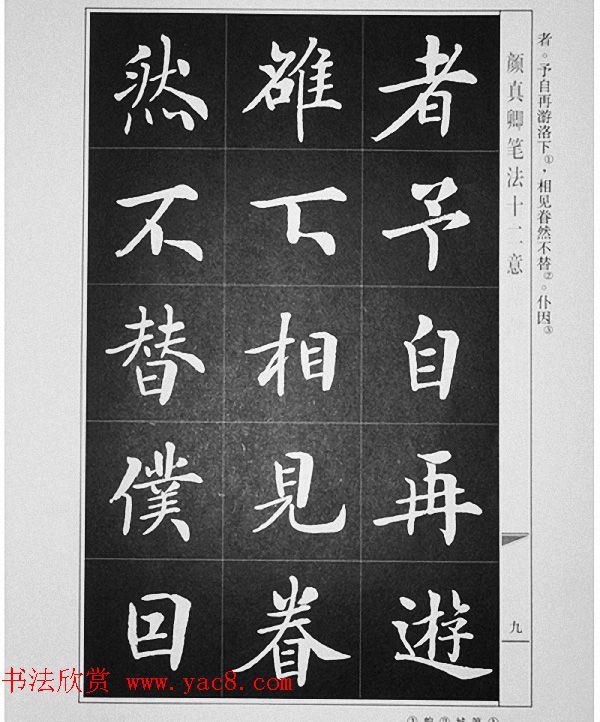 者。予自再游洛下①，相见眷然不替②。仆因③
颜真卿笔法十二意
九
者予自再遊
雒下相見眷
然不替僕囙
书法欣赏 www.yac8.com